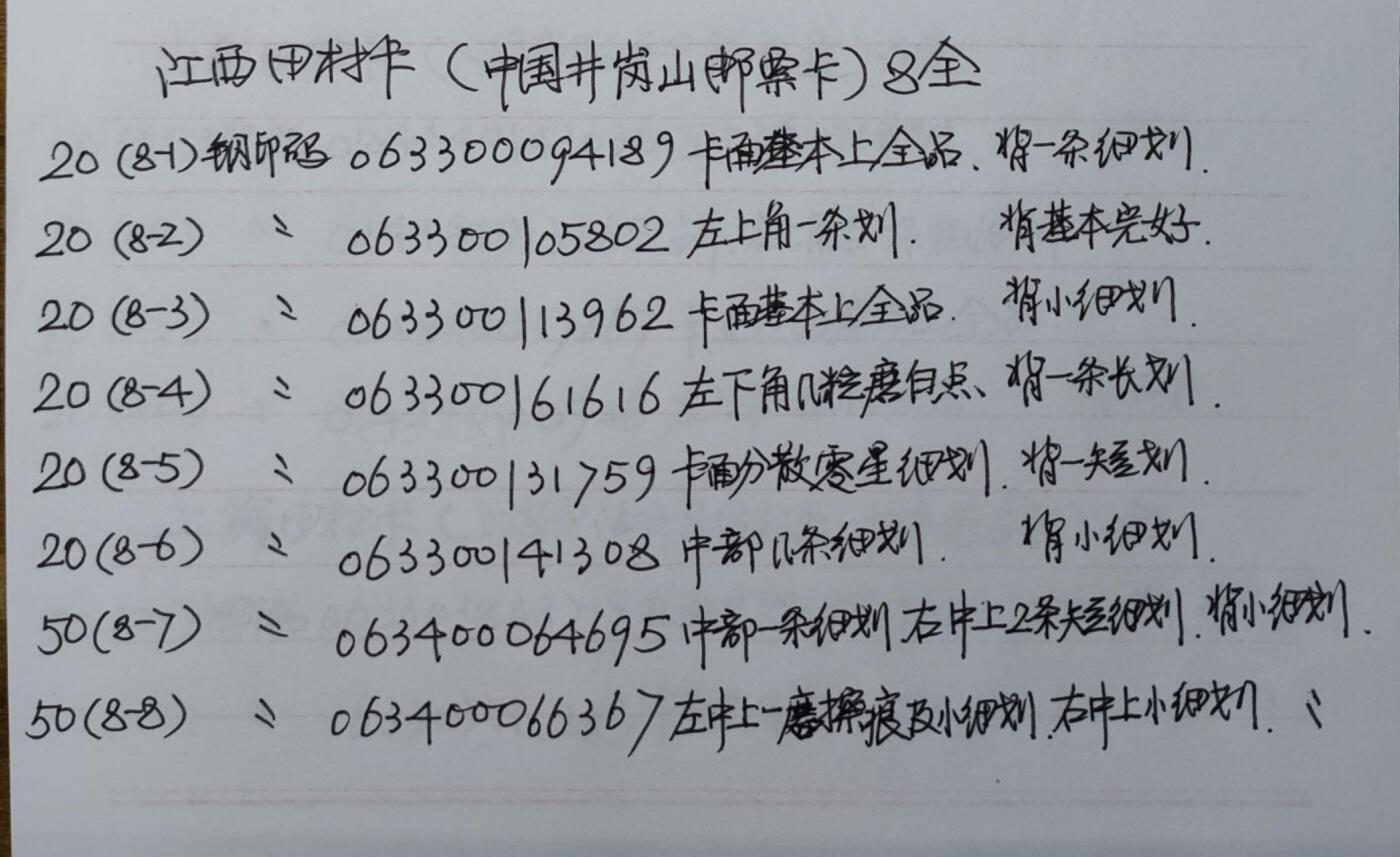 江西田村卡（中国井岗山邮票卡）8全
20（8-1）钢印码 063300094189 卡面基本上全品、背一条细划.
20（8-2） 〃 063300105802 左上角一条划. 背基本完好.
20（8-3） 〃 063300113962 卡面基本上全品. 背小细划.
20（8-4） 〃 063300161616 左下角几粒磨白点、背一条长划.
20（8-5） 〃 063300131759 卡面分散零星细划. 背一短划.
20（8-6） 〃 063300141308 中部几条细划. 背小细划.
50（8-7） 〃 063400064695 中部一条细划右中上2条短细划. 背小细划.
50（8-8） 〃 063400066367 左中上一磨擦痕及小细划.右中上小细划. 〃